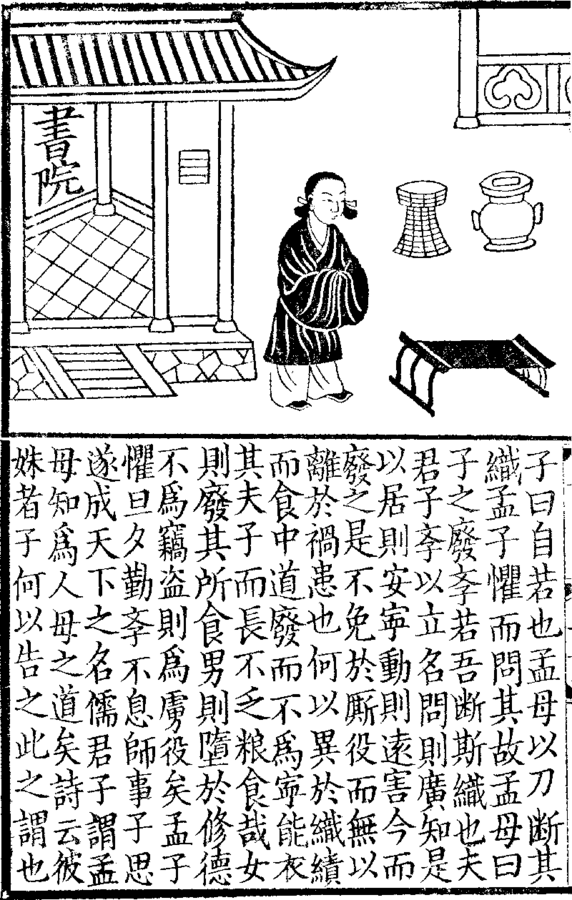 書院
子曰自若也孟母以刀断其
織孟子懼而問其故孟母曰
子之廢斈若吾断斯織也夫
君子斈以立名問則廣知是
以居則安寧動則遠害今而
廢之是不免於厮役而無以
離於禍患也何以異於織績
而食中道廢而不爲寧能衣
其夫子而長不乏粮食哉女
則廢其所食男則墮於修德
不爲竊盗則爲虜役矣孟子
懼旦夕勤斈不息師事子思
遂成天下之名儒君子謂孟
母知爲人母之道矣詩云彼
姝者子何以告之此之謂也